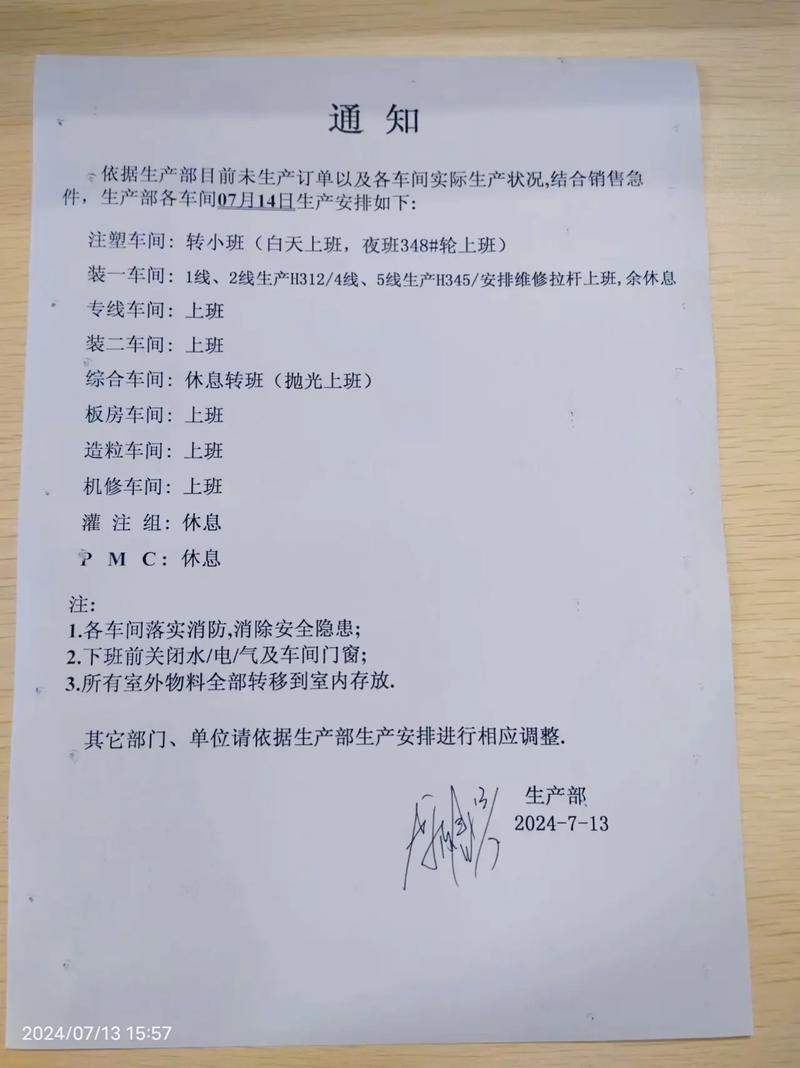 通 知
依据生产部目前未生产订单以及各车间实际生产状况,结合销售急
件，生产部各车间07月14日生产安排如下:
注塑车间: 转小班（白天上班，夜班348#轮上班）
装一车间: 1线、2线生产H312/4线、5线生产H345/安排维修拉杆上班,余休息
专线车间: 上班
装二车间: 上班
综合车间: 休息转班（抛光上班）
板房车间: 上班
造粒车间: 上班
机修车间: 上班
灌 注 组: 休息
P M C: 休息
注:
1.各车间落实消防,消除安全隐患;
2.下班前关闭水/电/气及车间门窗;
3.所有室外物料全部转移到室内存放.
其它部门、单位请依据生产部生产安排进行相应调整.
生产部
2024-7-13
2024/07/13 15:57